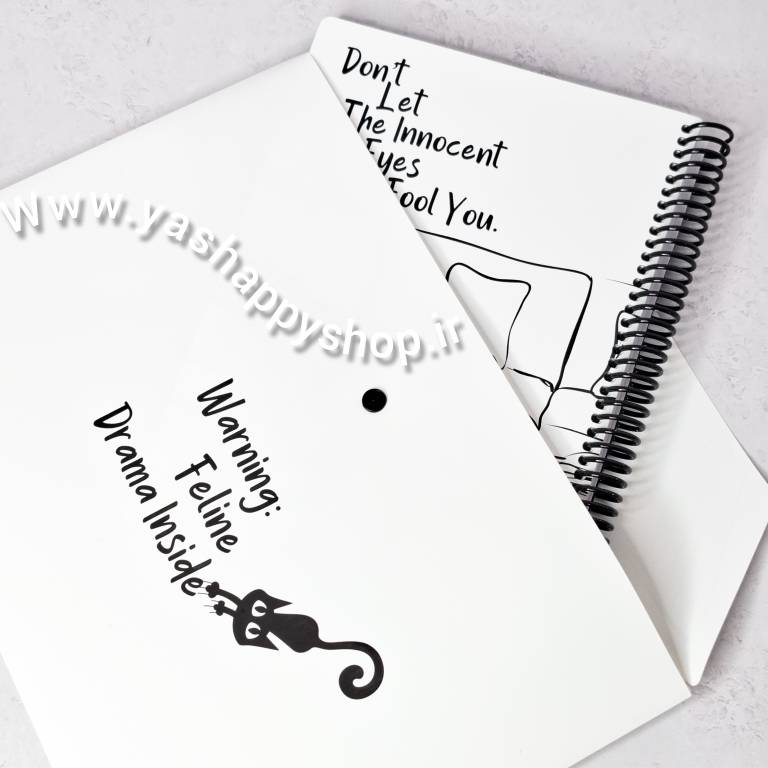 Don't
Let
The Innocent
Eyes
Fool You.
Www.yashappyshop.ir
Warning:
Feline
Drama Inside